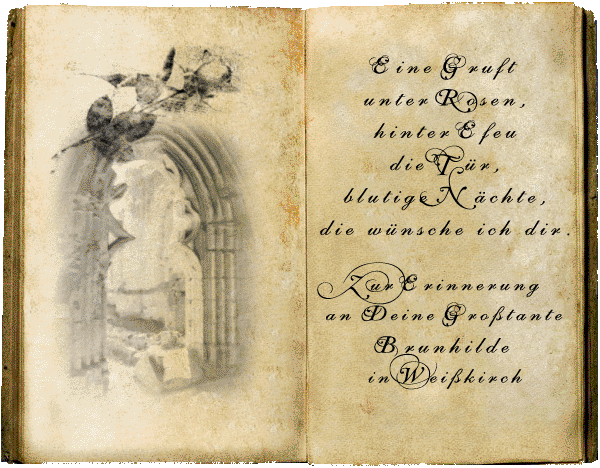 Eine Gruft
unter Rosen,
hinter Efeu
die Tür,
blutige Nächte,
die wünsche ich dir.
Zur Erinnerung
an Deine Großtante
Brunhilde
in Weißkirch